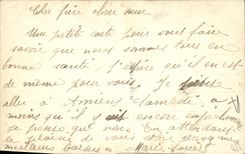 Cher frère chère sœur
Une petite carte pour vous faire
savoir que nous sommes tous en
bonne santé. J'espère qu'il en est
de même pour vous. Je
aller à Amiens Samedi, à
moins qu'il y encore
je pense que non. En attendant
le plaisir de vous
meilleurs baisers Marie Louise